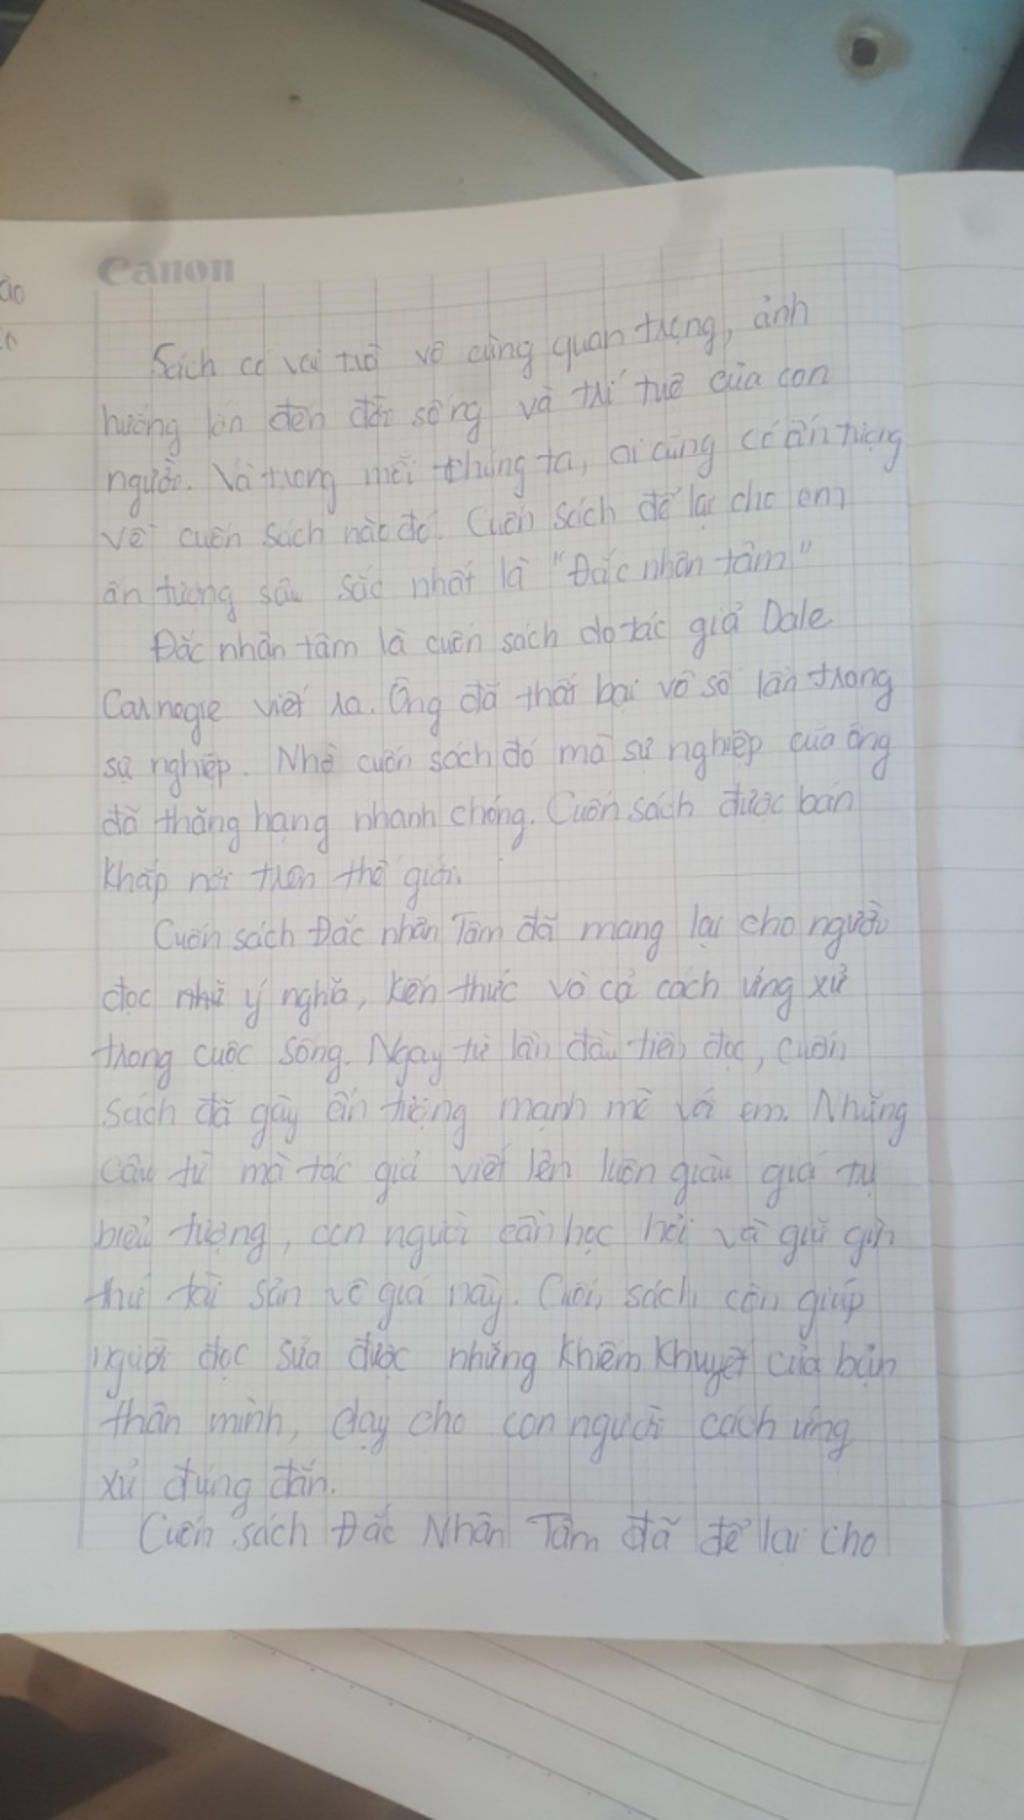 Canon
Sách có vai trò vô cùng quan trọng, ảnh
hưởng lớn đến đời sống và trí tuệ của con
người. Và trong mỗi chúng ta, ai cũng có ấn tượng
về cuốn sách nào đó. Cuốn sách để lại cho em
ấn tượng sâu sắc nhất là "Đắc nhân tâm"
Đắc nhân tâm là cuốn sách do tác giả Dale
Carnegie viết ra. Ông đã thất bại vô số lần trong
sự nghiệp. Nhờ cuốn sách đó mà sự nghiệp của ông
đã thăng hạng nhanh chóng. Cuốn sách được bán
khắp nơi trên thế giới.
Cuốn sách Đắc nhân Tâm đã mang lại cho người
đọc như ý nghĩa, kiến thức và cả cách ứng xử
trong cuộc sống. Ngay từ lần đầu tiên đọc, cuốn
sách đã gây ấn tượng mạnh mẽ với em. Những
câu từ mà tác giả viết lên luôn giàu giá trị
biểu tượng, con người cần học hỏi và giữ gìn
thứ tài sản vô giá này. Cuốn sách còn giúp
người đọc sửa được những khiếm khuyết của bản
thân mình, dạy cho con người cách ứng
xử đúng đắn.
Cuốn sách Đắc Nhân Tâm đã để lại cho